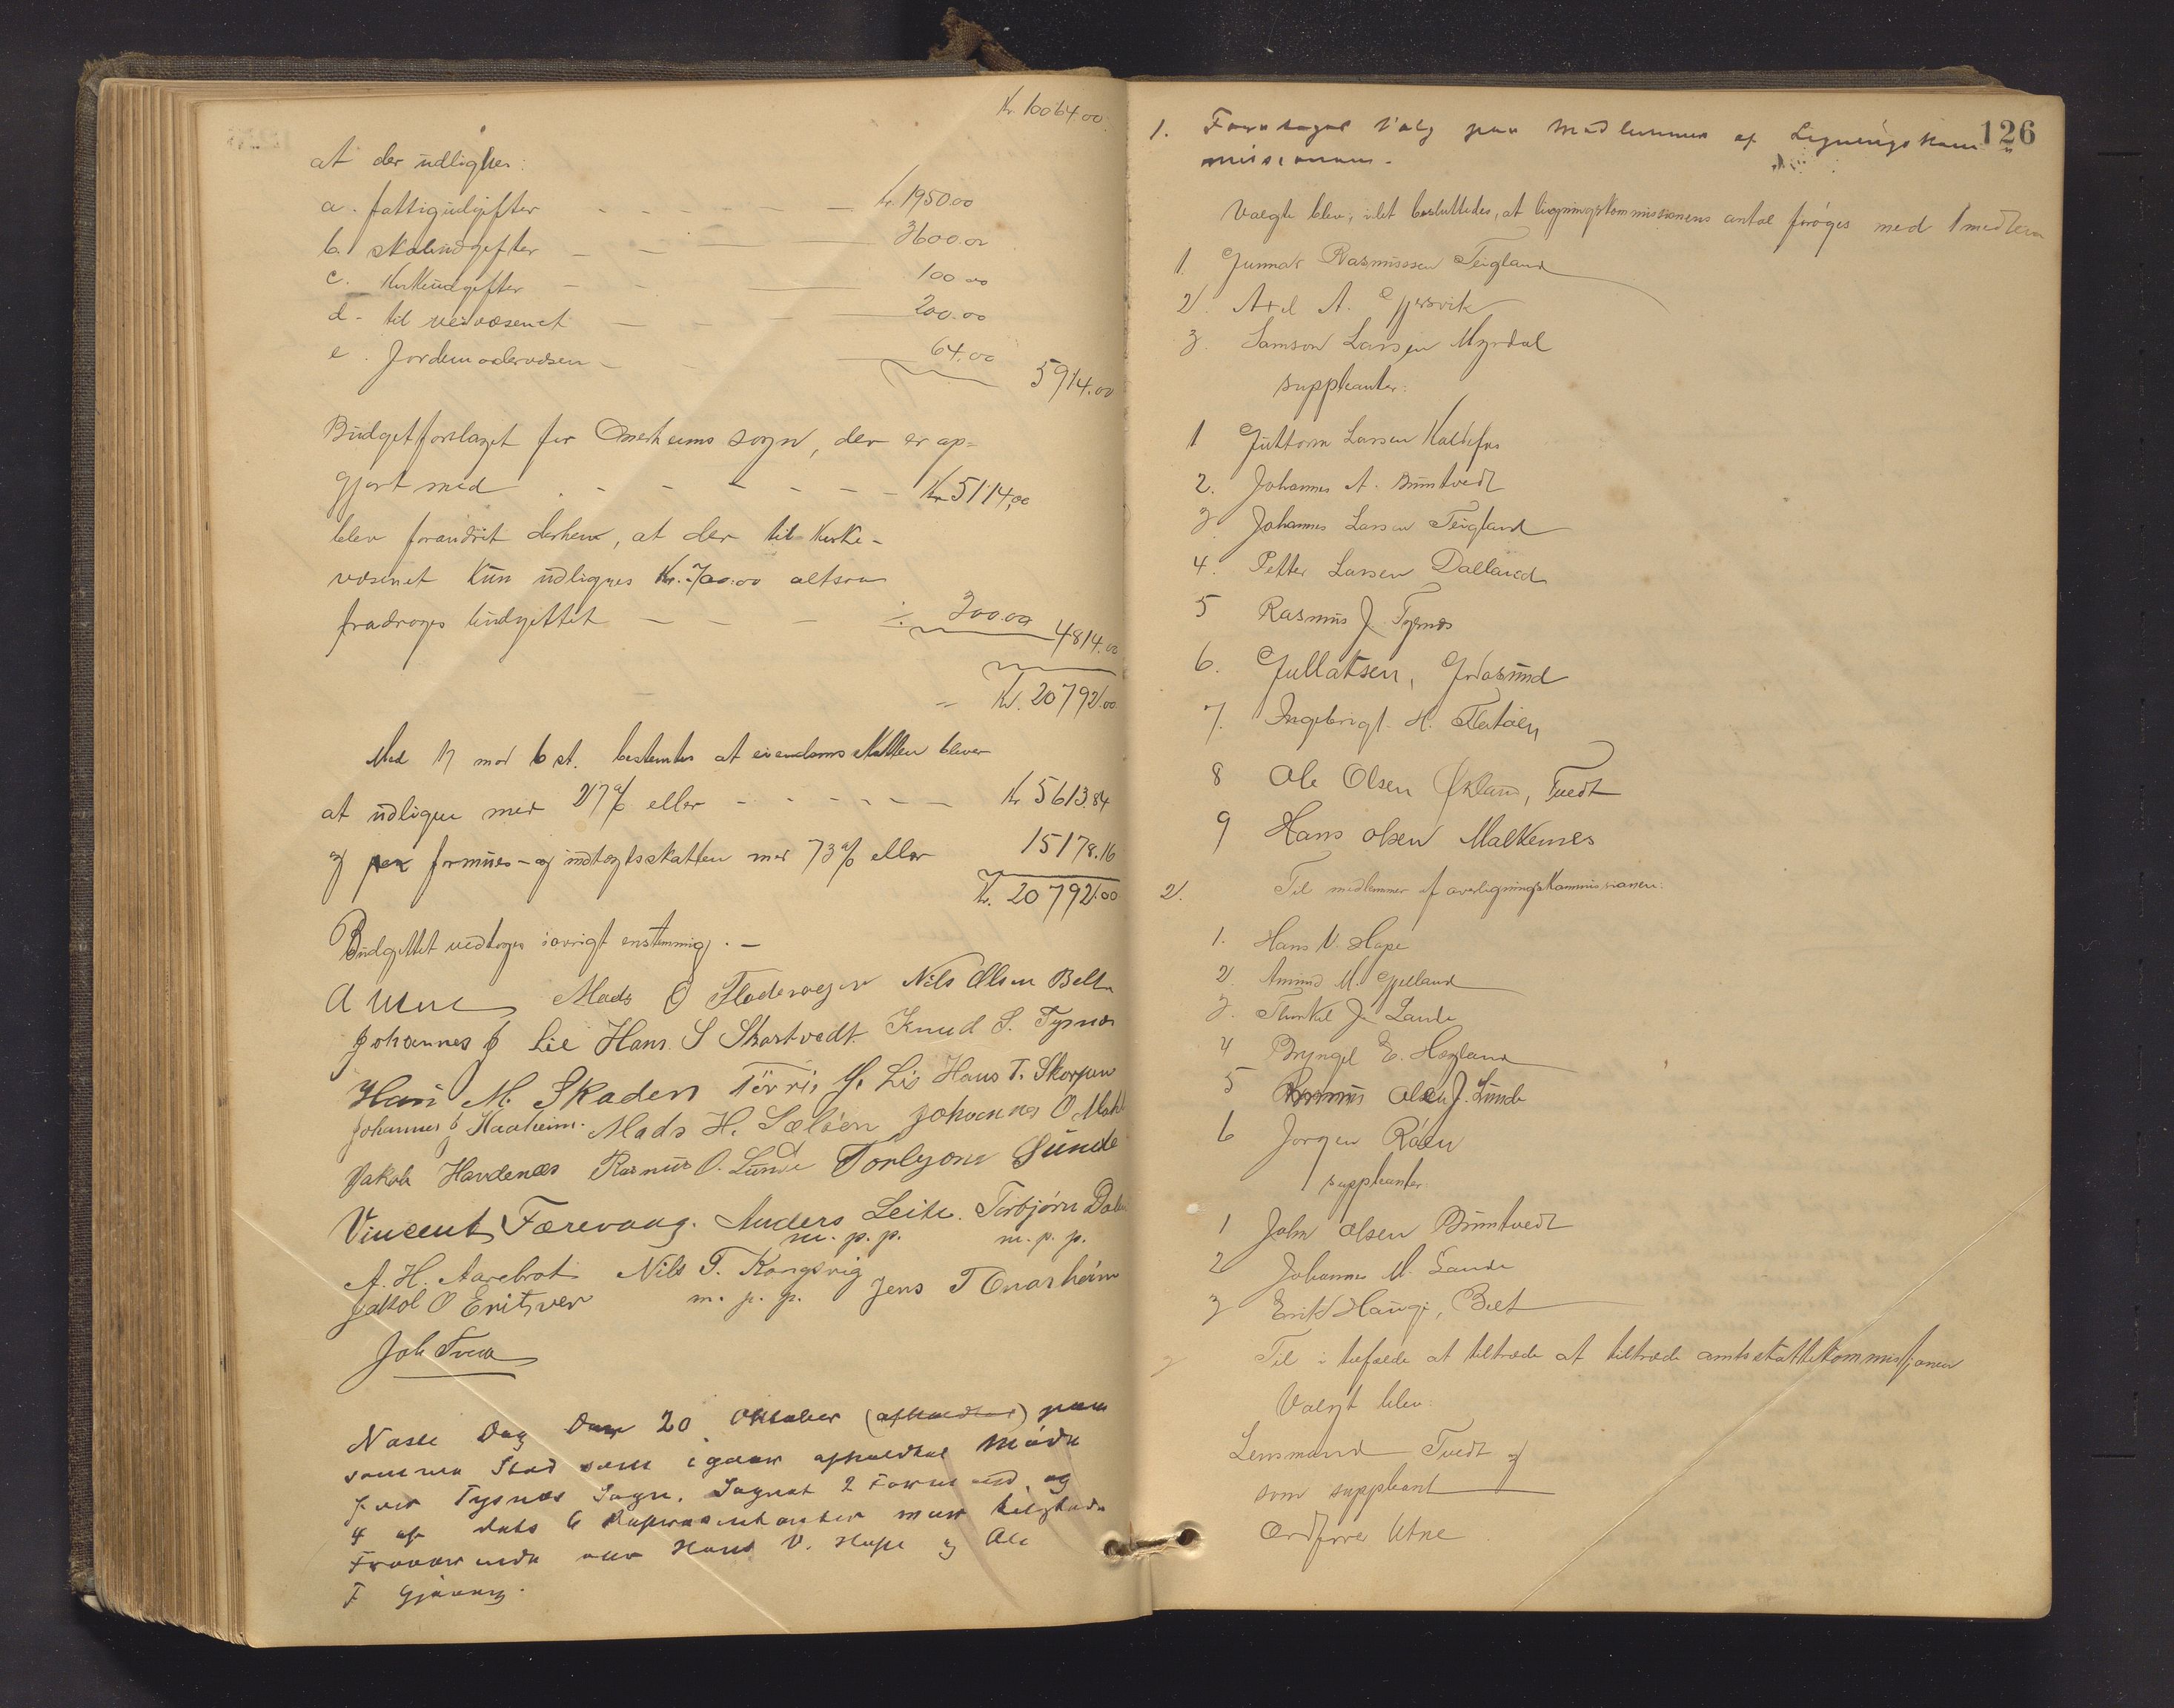 Kr. 10064.00
at der udlignes:
a. fattigudgifter - - - - Kr. 1950.00
b. skoleudgifter - - 3600.00
c. Kirkeudgifter - - 100.00
d. til veivæsenet - - 200.00
e. Jordemodervæsen - 64.00
5914.00
Budgetforslaget for Onerheims sogn, der er op-
gjort med - - - - - - Kr 5114,00
blev forandrit derhen, at der til Kirke-
væsenet kun udlignes Kr. 700.00 altsaa
fradroges budgettet - - - ÷ 300.00 4814.00
Kr. 20792.00
Med 17 mod 6 st. bestemtes at eiendomsskatten bliver
at udligne med 27% eller - - - - - - Kr. 5613.84
og paa formues- og indtægtsskatten med 73% eller 15178.16
Kr. 20792.00
Budgettet vedtoges iøvrigt enstemmig. -
A Utne Mads O Fladevager Nils Olsen Belt
Johannes J Lie Hans S Skartvedt Knud S. Tysnæs
Hans M. Skaden Tørris G. Lie Hans T. Skorpen
Johannes J Haaheim. Mads H. Sæløen Johannes O
Jakob Hardenæs Rasmus O. Lunde Torbjørn Sunde
Vincent Færevaag. Anders Leite. Torbjørn
m. p. p. m. p. p.
A. H. Aarebrot Nils T. Kongsvig
Jakob O Enitsver m. p. p. Jens T Onarheim
Joh Tveit
Næste Dag den 20 Oktober (afholdtes) paa
samme Sted som igaar afholdtes Møde
for Tysnæs Sogn. Sognets 2 Formænd og
4 af dets 6 Repræsentanter var tilstede
Fraværende var Hans V. Hope og Ole
F Gjøvaag.
126
1. Foretoges Valg paa Medlemmer af Ligningskom
missionen.
Valgte blev, idet besluttedes, at ligningskommissionens antal forøges med 1 medlem
1. Gunnar Rasmussen Teigland
2. Axel A. Gjersvik
3. Samson Larsen Myrdal
suppleanter:
1 Guttorm Larsen Kaldefos
2. Johannes A. Bruntvedt
3. Johannes Larsen Teigland
4. Petter Larsen Dalland
5 Rasmus J. Tysnæs
6. Gullaksen, Godøsund
7. Ingebrigt H. Flatøen
8 Ole Olsen Økland, Tvedt
9 Hans Olsen Malkenes
2. Til medlemmer af overligningskommissionen:
1. Hans V. Hope
2. Amund M. Gjelland
3. Thorkel J. Lande
4 Bryngel E. Hogland
5 Rasmus Olsen J. Lunde
6 Jørgen Røen
suppleanter
1 John Olsen Bruntvedt
2 Johannes M. Lande
3 Erik Haugi, Belt
3 Til i tilfælde at tiltræde at tiltræde amtsskattekommissjonen
Valgt blev:
Lensmand Tvedt og
som suppleant
Ordfører Utne